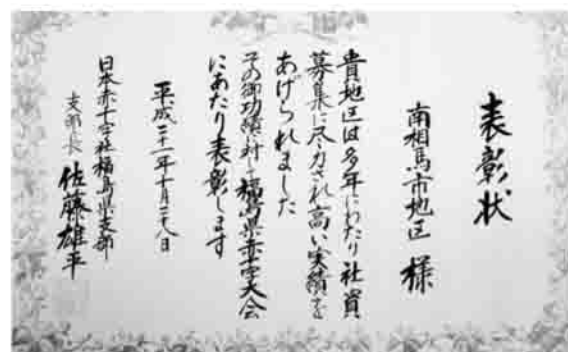 表彰状
南相馬市地区 様
貴地区は多年にわたり社資
募集に尽力され高い実績を
あげられました
その御功績に対し福島県赤十字大会
にあたり表彰します
平成二十一年十月二十九日
日本赤十字社福島県支部
支部長 佐藤雄平